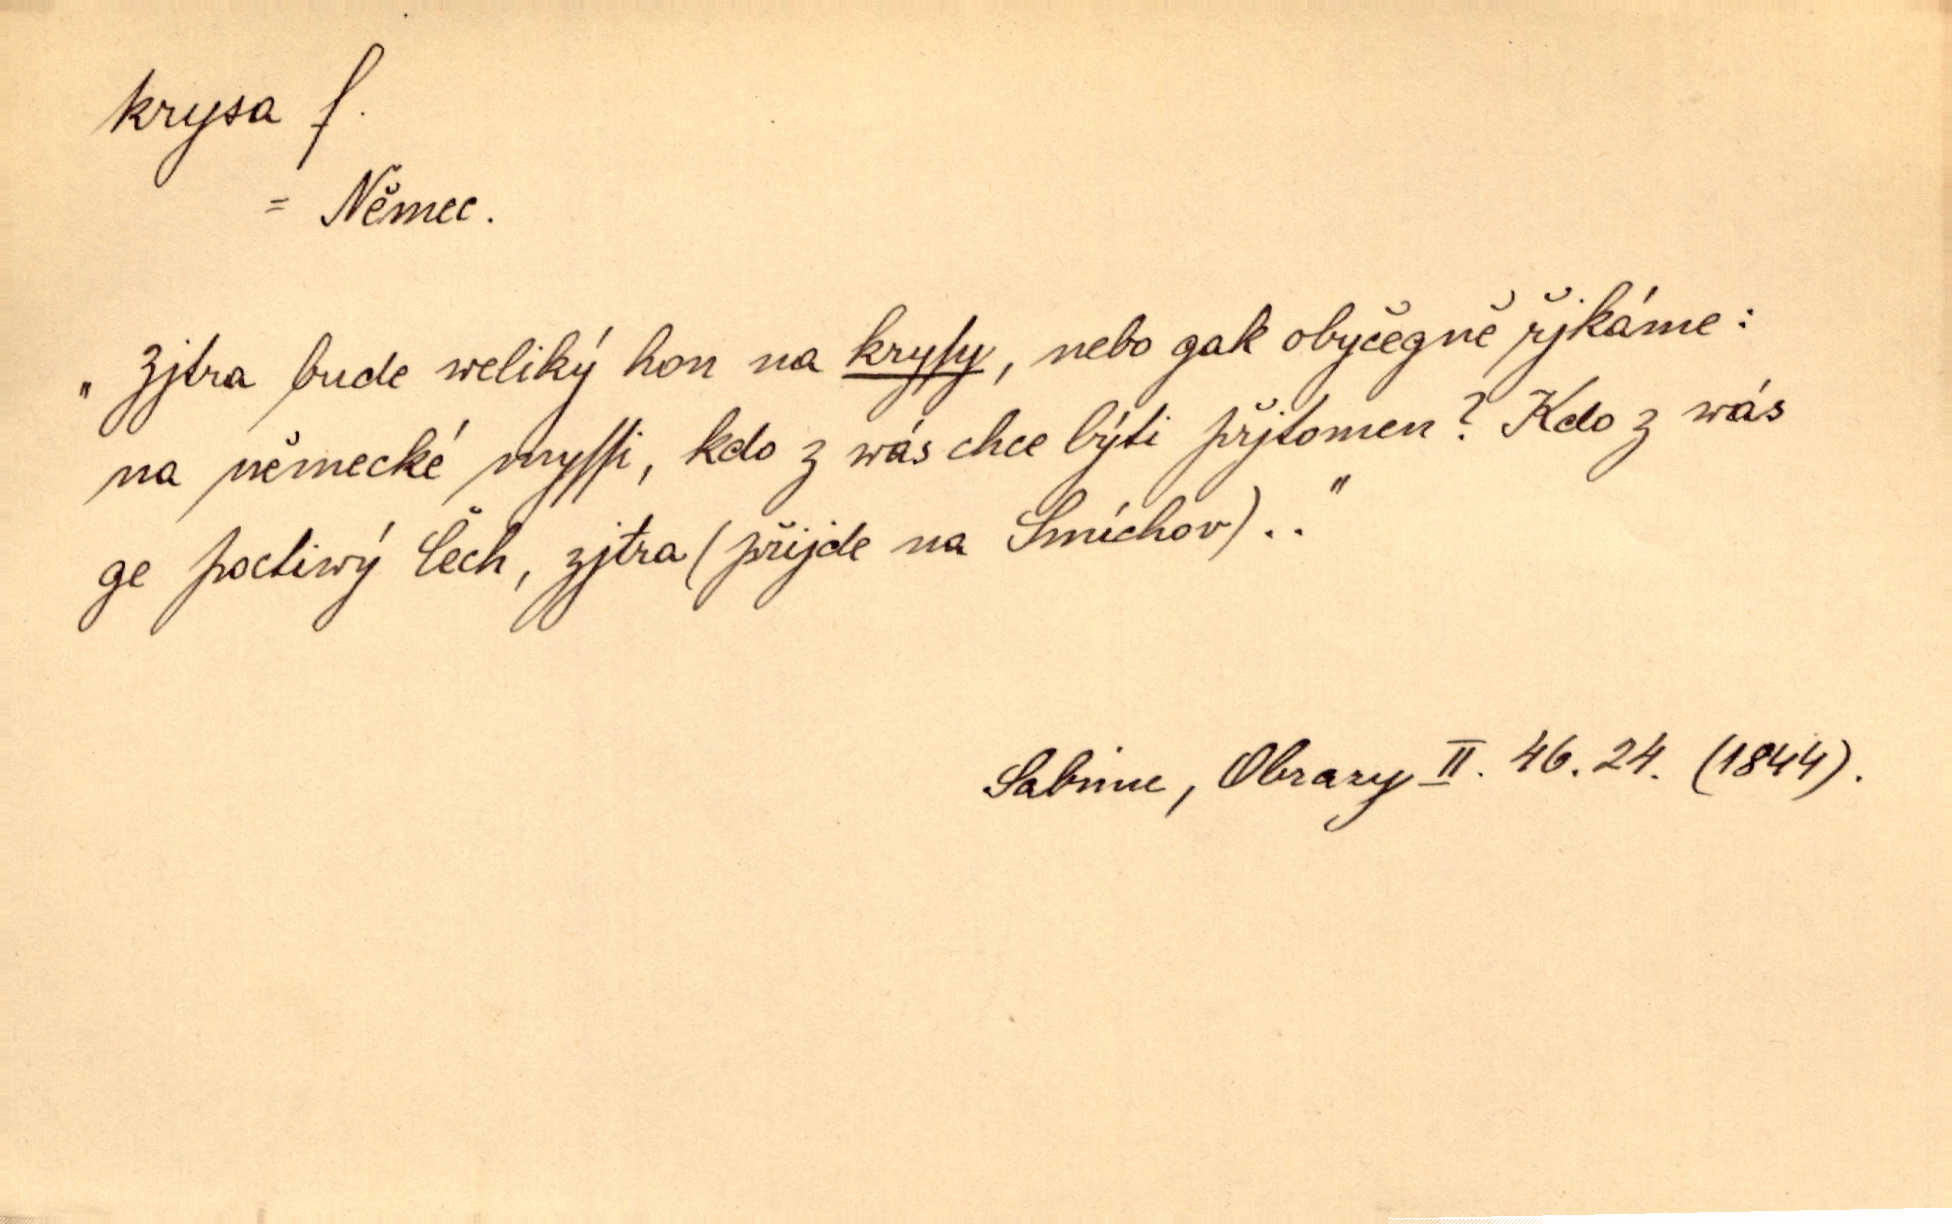 krysa f.
= Němec.
„Zjtra bude weliký hon na kryſy, nebo gak obyčegně řjkáme:
na německé myſſi, kdo z wás chce býti přjtomen? Kdo z wás
ge poctiwý Čech, zjtra (přijde na Smíchov)..."
Sabina, Obrazy II. 46. 24. (1844).